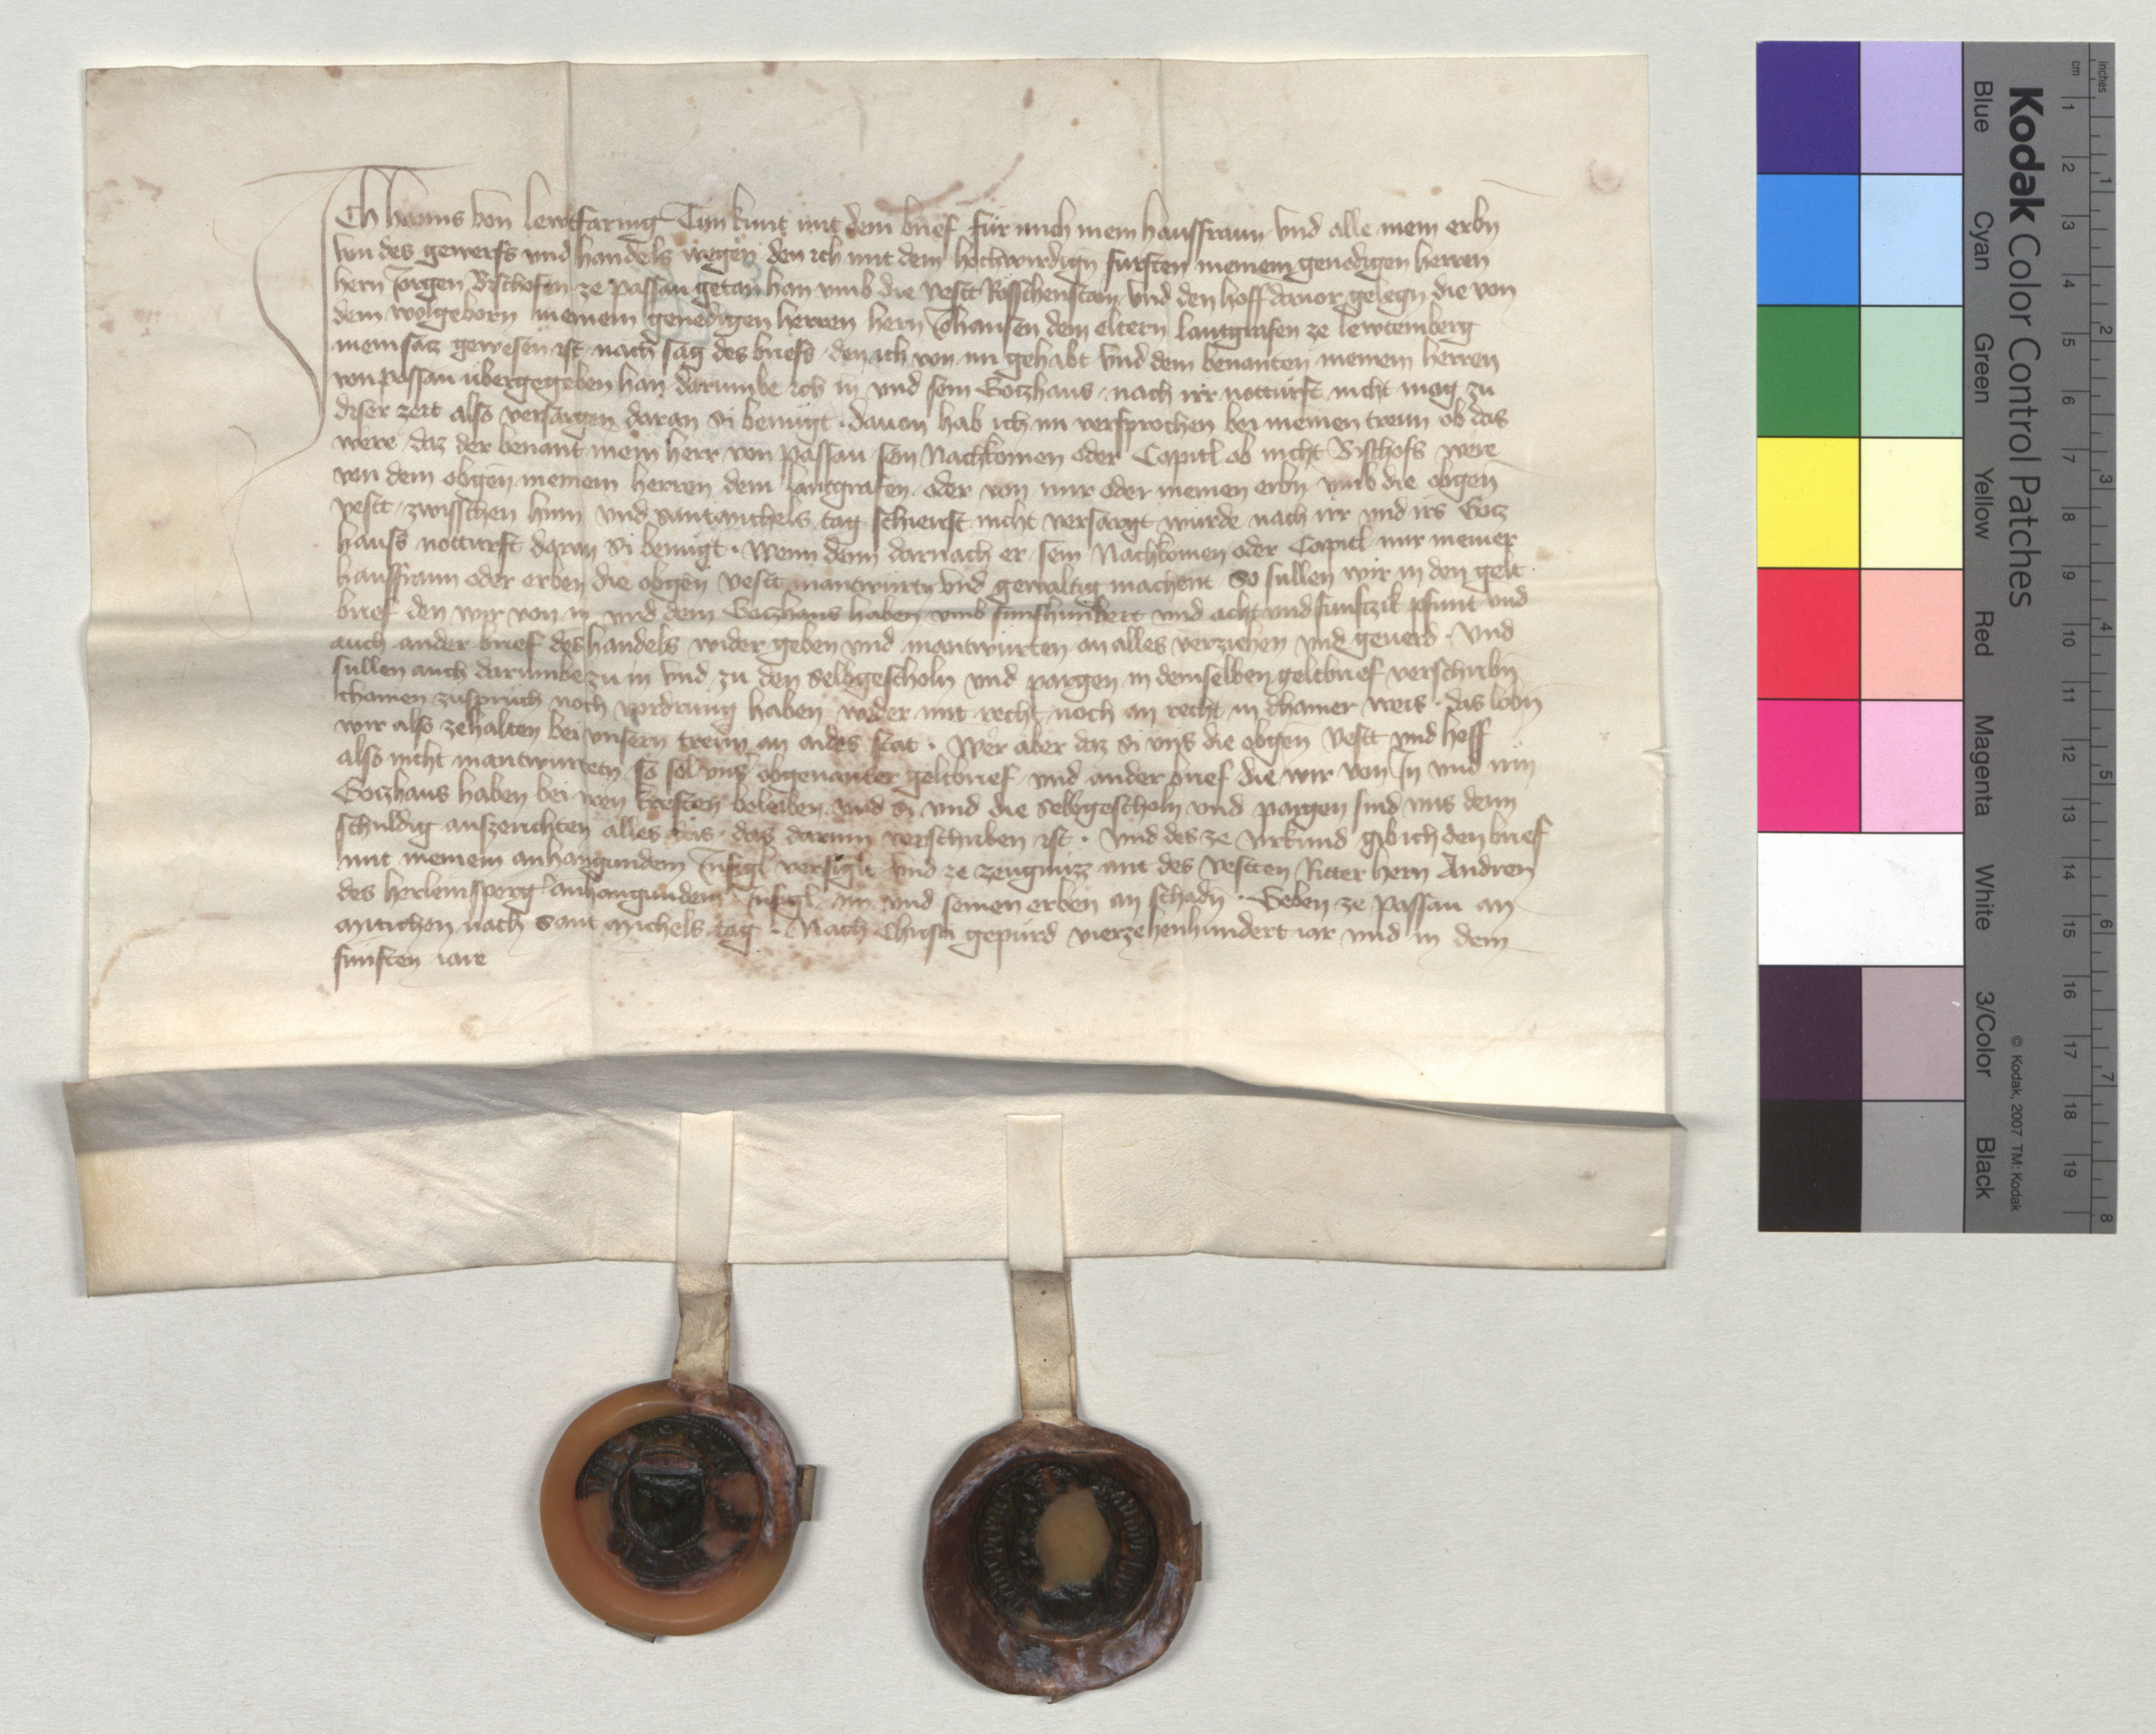 Ich Hanns von Lewtfaring Tun kunt mit dem brief für mich mein haussfraun und alle mein erbn
von des gewerfs und handels wegen den ich mit dem hochwirdign fursten meinem genedigen herren
hern Jorgen Bischofen ze Passau getan han umb die vestt Rosschenstain und den hoff davor gelegn die von
dem wolgeborn meinem genedigen herren hern Johansen dem eltern lantgrafen ze Lewtemberg
mein satz gewesen ist nach sag des briefs den ich von im gehabt und dem benanten meinem herren
von passau übergegeben han darumbe ich in und sein Gotzhaus nach irr notturft nicht mag zu
diser zeit also versargen daran si benügt . davon hab ich im versprochen bei meinen treun ob das
were daz der benant mein herr von passau sein Nachkomen oder Capitl ob nicht Bischofs were
von dem obgen meinem herren dem lantgrafen oder von mir oder meinen erbn umb die obgen
vestt zwisschen hinn und Santmichels tag schierist nicht versargt wurde nach irr und irs Gotz
hauss notturft daran si benügt . Wenn denn darnach er sein Nachkomen oder Capitl mir meiner
haussfraun oder erben die obgen vestt inantwurtn und gewaltig machent So sullen wir in den gelt
brief den wir von in und dem Gotzhaus haben umb funfhundert und acht und funftzik pfunt und
auch ander brief des handels wider geben und inantwurten an alles verziehen und geverd . Und
sullen auch darumbe zu in und zu den selbgescholn und pargen in demselben geltbrief verschribn
chainen zuspruch noch vordrung haben weder mit recht noch an recht in chainer weis . das lobn
wir also zehalten bei unsern treun an aides stat . Wer aber daz si uns die obgen vestt und hoff
also nicht inantwurtetn so sol uns obgenanter geltbrief und ander brief die wir von In und irm
Gotzhaus haben bei iren kreften beleiben und si und die selbgescholn und pargen sind uns denn
schuldig auszerichten alles das daz darinn verschriben ist . Und des ze urkund gib ich den brief
mit meinem anhangundem Insigl versiglt und ze zeugnuzz mit des vestten Ritter hern Andren
des herleinsperg anhangundem Insigl im und seinen erben an schadn . Geben ze Passau an
Mitichen nach Sant Michels tag . Nach Christi gepürd vierzehenhundert iar und in dem
fünften iare
Kodak Color Control Patches
Blue Cyan Green Yellow Red Magenta White 3/Color Black
© Kodak, 2007 TM: Kodak
cm 1 2 3 4 5 6 7 8 9 10 11 12 13 14 15 16 17 18 19
inches 1 2 3 4 5 6 7 8